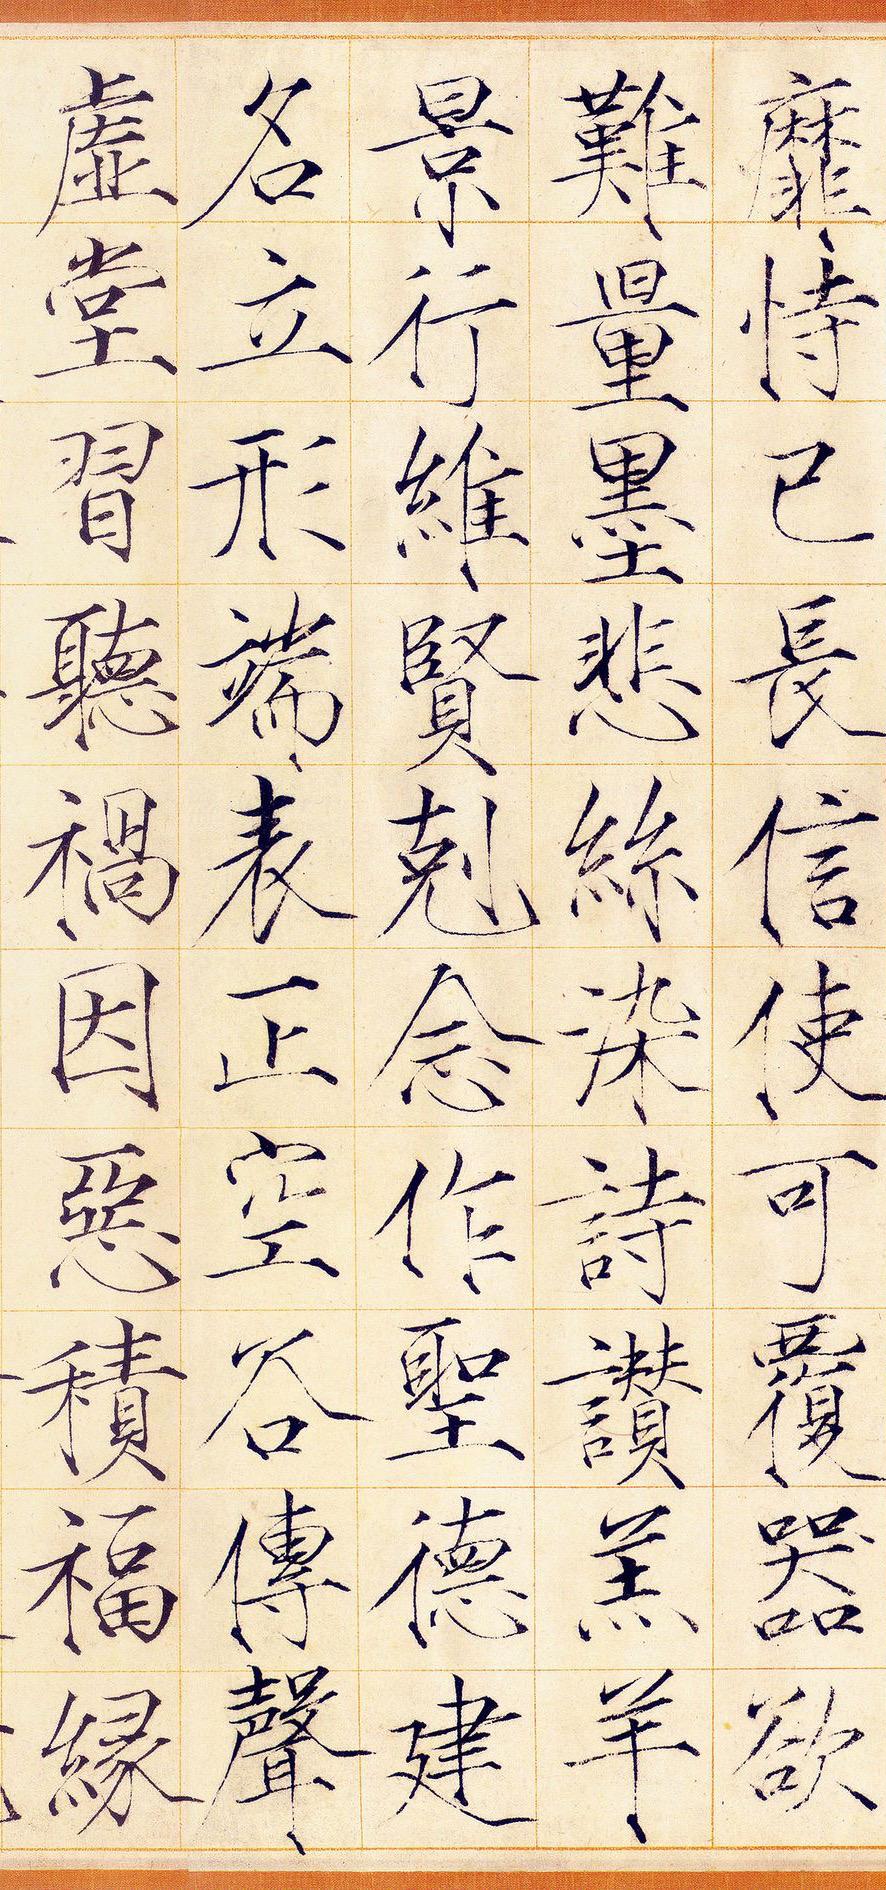 靡恃己長信使可覆器欲
難量墨悲絲染詩讃羔羊
景行維賢剋念作聖德建
名立形端表正空谷傳聲
虛堂習聽禍因惡積福緣